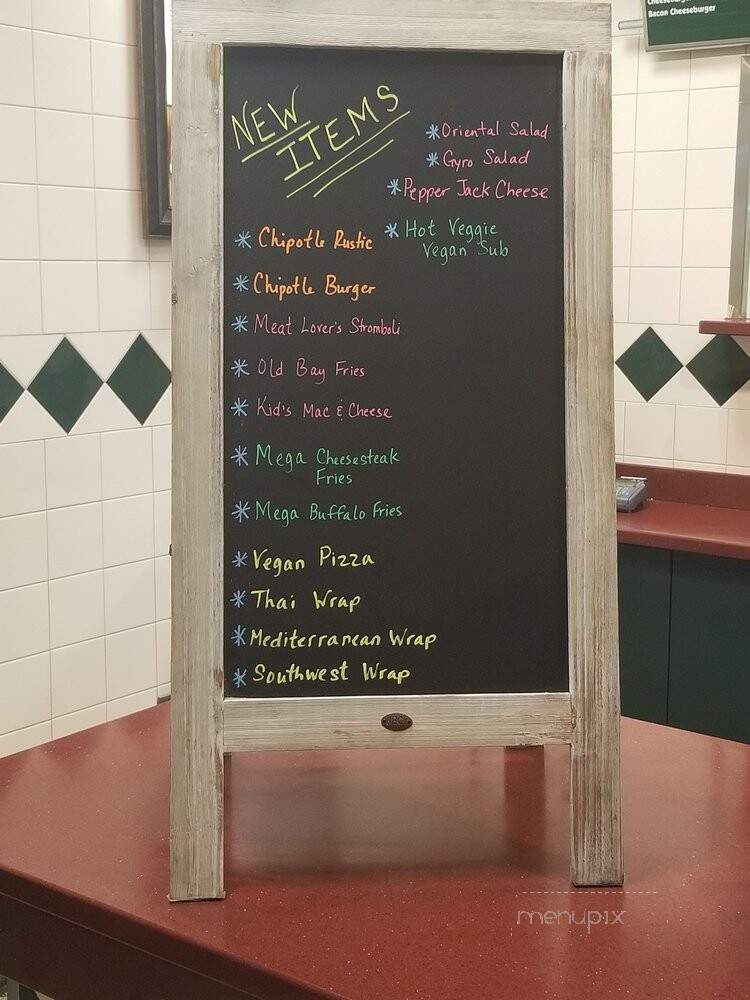 Cheeseburger
Bacon Cheeseburger
NEW
ITEMS
* Oriental Salad
* Gyro Salad
* Pepper Jack Cheese
* Hot Veggie
Vegan Sub
* Chipotle Rustic
* Chipotle Burger
* Meat Lover's Stromboli
* Old Bay Fries
* Kid's Mac & Cheese
* Mega Cheesesteak
Fries
* Mega Buffalo Fries
* Vegan Pizza
* Thai Wrap
* Mediterranean Wrap
* Southwest Wrap
menupix